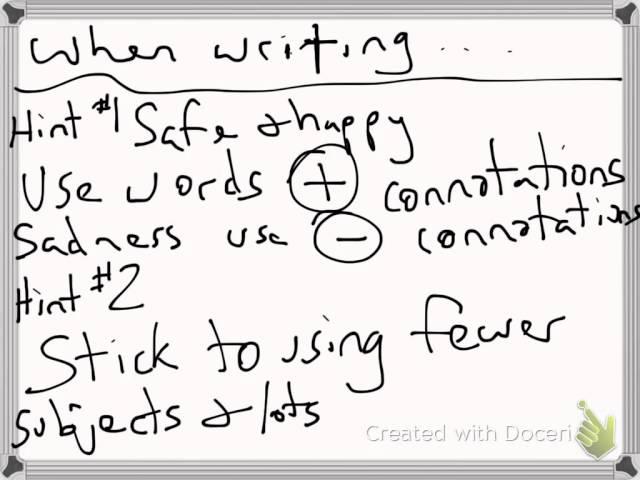 When writing ....
Hint #1 Safe & happy
Use words + connotations
Sadness use - connotations
Hint #2
Stick to using fewer
subjects & lots
Created with Doceri